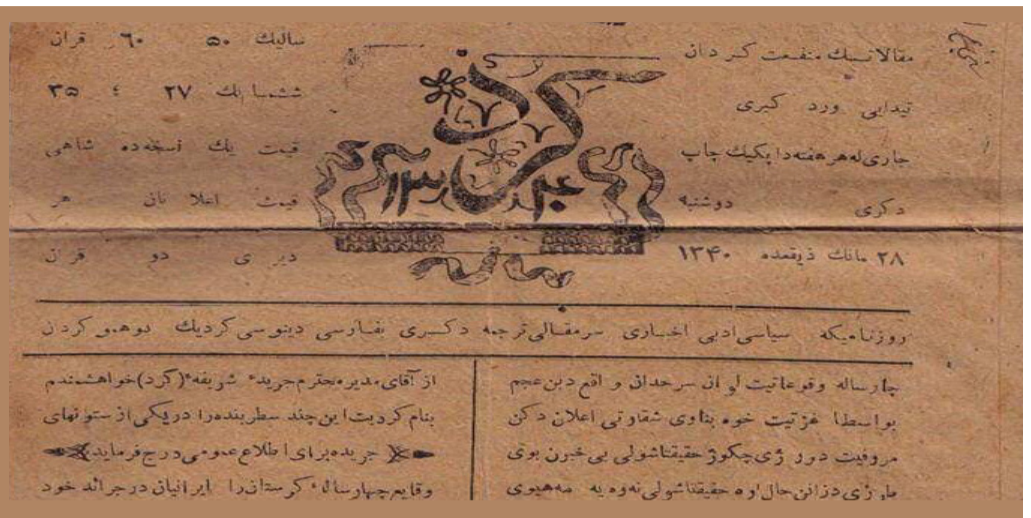 مقالاتیك منفعت كردان
تیدابی ورد گیری
جاری له هر هفته دا یكیك چاپ
دكری دوشنبه
۲۸ مانك ذیقعده ۱۳۴۰
كرد
۱۳۴۰
سالیك ۵۰ ۶۰ قران
ششمایك ۲۷ ٤ ۳۵
قیمت یك نسخه ده شاهی
قیمت اعلانان هر
دیری دو قران
روزنامیكه سیاسی ادبی اخباری سرمقالی ترجمه دكری بفارسی دینوسی كردیك بوهمو كردن
چارساله وقوعاتیت لوان سرحدان واقع دبن عجم
بواسطا غزتیت خوه بناوی شقاوتی اعلان دكن
مروفیت دور ژی چكوژ حقیقتا شولی بی خبرن بوی
ژی دزانن حال اوه حقیقتا شولی نه وه یه
از آقای مدیر محترم جریدهٔ شریفهٔ (كرد) خواهشمندم
بنام كردیت این چند سطر بنده را در یكی از ستونهای
جریده برای اطلاع عمومی درج فرماید
وقایع چهار سالهٔ كرستان را ایرانیان در جرائد خود